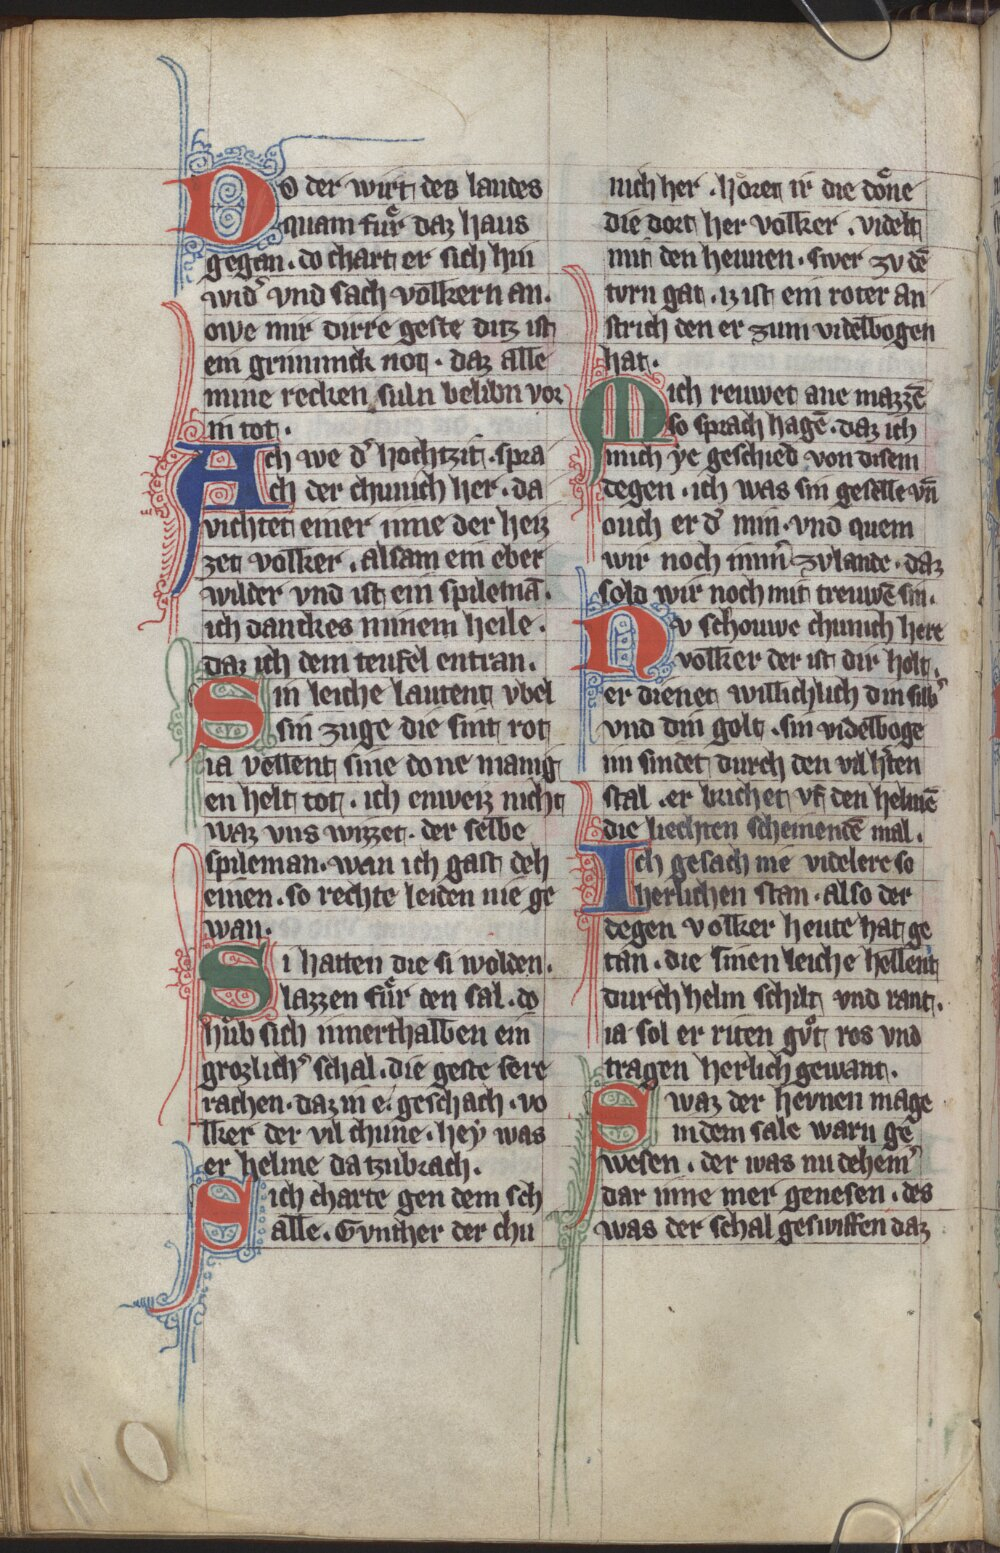 Do der wirt des landes
quam fuͤr daz haus
gegan . do chart er sich hin
wid᾽ vnd sach volkern an .
owe mir dirre geste ditz ist
ein grimmick not . daz alle
mine recken suln belibn vor
in tot .
Ach we d᾽ hochtzit . spra
ch der chunich her . da
vichtet einer inne der heiz
zet volker . alsam ein eber
wilder vnd ist ein spilemā .
ich danckes minem heile .
daz ich dem teufel entran .
Sin leiche lautent vbel
sin zuge die sint rot
ia vellent sine done manig
en helt tot . ich enweiz nicht
waz vns wizzet . der selbe
spileman . wan ich gast deh
einen . so rechte leiden nie ge
wan .
Si hatten die si wolden .
lazzen fuͤr den sal . do
huͦb sich innerthalben ein
grozlich᾽ schal . die geste sere
rachen . daz in e . geschach . vo
lker der vil chune . hey was
er helme da tzubrach .
Sich charte gen dem sch
alle . Gvnther der chu
nich her . horet ir die doͤne
die dort her volker . videlt
mit den heunen . swer zv dē
tvrn gat . iz ist ein roter an
strich den er zum videlbogen
hat .
Mich reuwet ane mazzē
so sprach hagē . daz ich
mich ye geschied von disem
degen . ich was sin geselle vn̄
ouch er d᾽ min . vnd quem
wir noch imm᾽ zvlande . daz
sold wir noch mit treuwē sin .
Nv schouwe chunich here
volker der ist dir holt .
er dienet willichlich din silb᾽
vnd din golt . sin videlboge
im sindet durch den vil h᾽ten
stal . er brichet vf den helmē
die liechten schemendē mal .
Ich gesach nie videlere so
herlichen stan . also der
degen volker heute hat ge
tan . die sinen leiche hellent
durch helm schilt vnd rant .
ia sol er riten gvͦt ros vnd
tragen herlich gewant .
Swaz der hevnen mage
in dem sale warn ge
wesen . der was nu dehein᾽
dar inne mer genesen . des
was der schal geswiffen daz